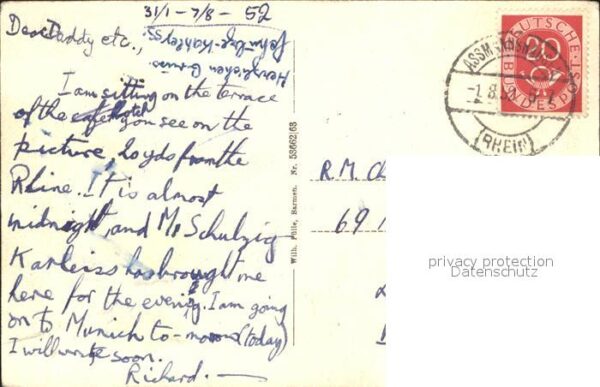 31/1 - 7/8 - 52
Dear Daddy etc.,
Herzlichen Gruss
I am sitting on the terrace
of the hotel you see on the
picture, 20 yds from the
Rhine. It is almost
midnight, and Mr Schulzig
has brought me
here for the evening. I am going
on to Munich to-morrow (today)
I will write soon.
Richard. —
Wilh. Fülle, Barmen. Nr. 53662/63
R. M.
69
DEUTSCHE
BUNDESPOST
20
-1.8.52
(RHEIN)
privacy protection
Datenschutz